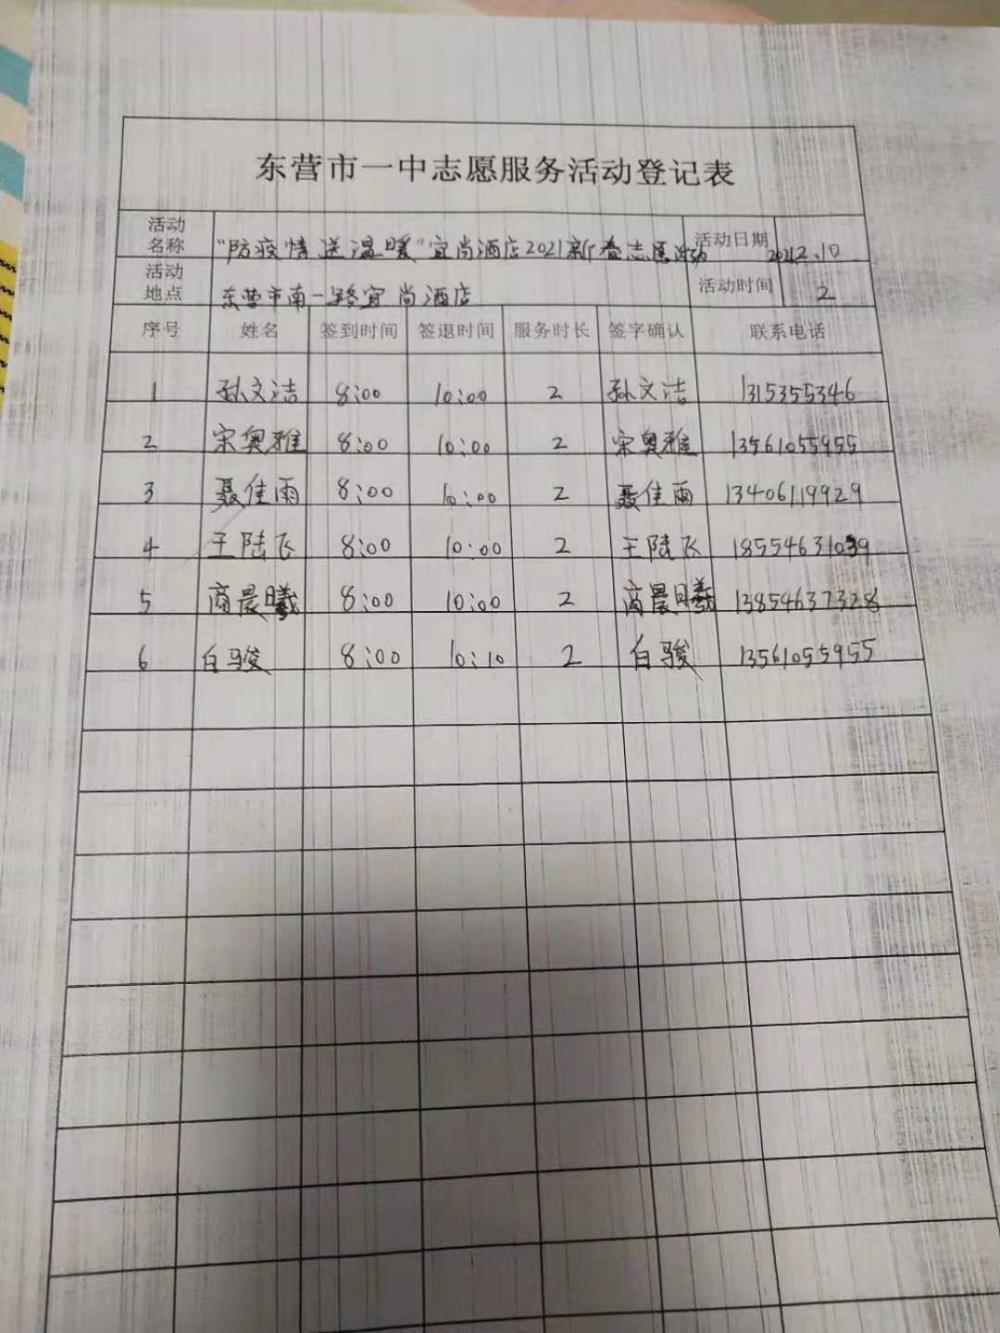 东营市一中志愿服务活动登记表
活动名称 "防疫情送温暖"宜尚酒店2021新春志愿活动 活动日期 2021.2.10
活动地点 东营市南一路宜尚酒店 活动时间 2
序号 姓名 签到时间 签退时间 服务时长 签字确认 联系电话
1 孙文洁 8:00 10:00 2 孙文洁 1315355346
2 宋奥雅 8:00 10:00 2 宋奥雅 13561055955
3 聂佳雨 8:00 10:00 2 聂佳雨 13406119929
4 王陆飞 8:00 10:00 2 王陆飞 18554631039
5 商晨曦 8:00 10:00 2 商晨曦 13854637328
6 白骏 8:00 10:10 2 白骏 13561055955